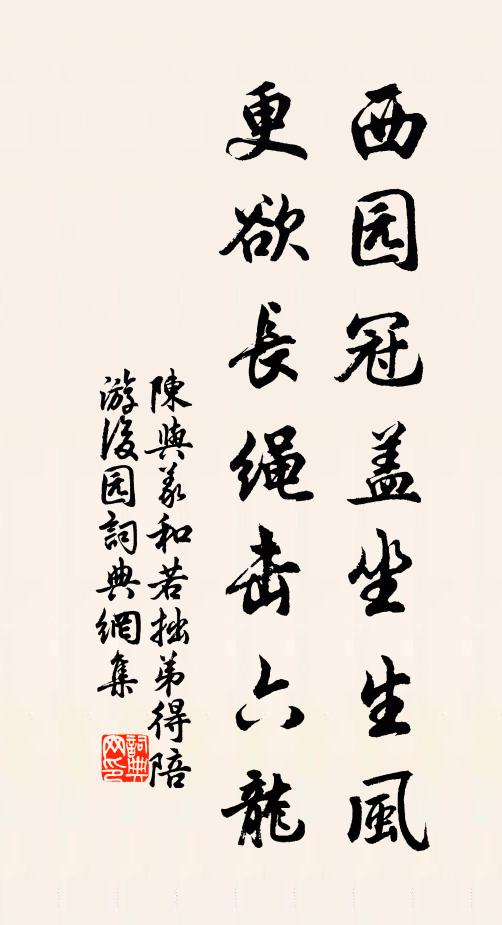 西园冠盖坐生风
更欲長绳击六龍
陳與义和若拙弟得陪
游後园詞典網集
詞典
网印